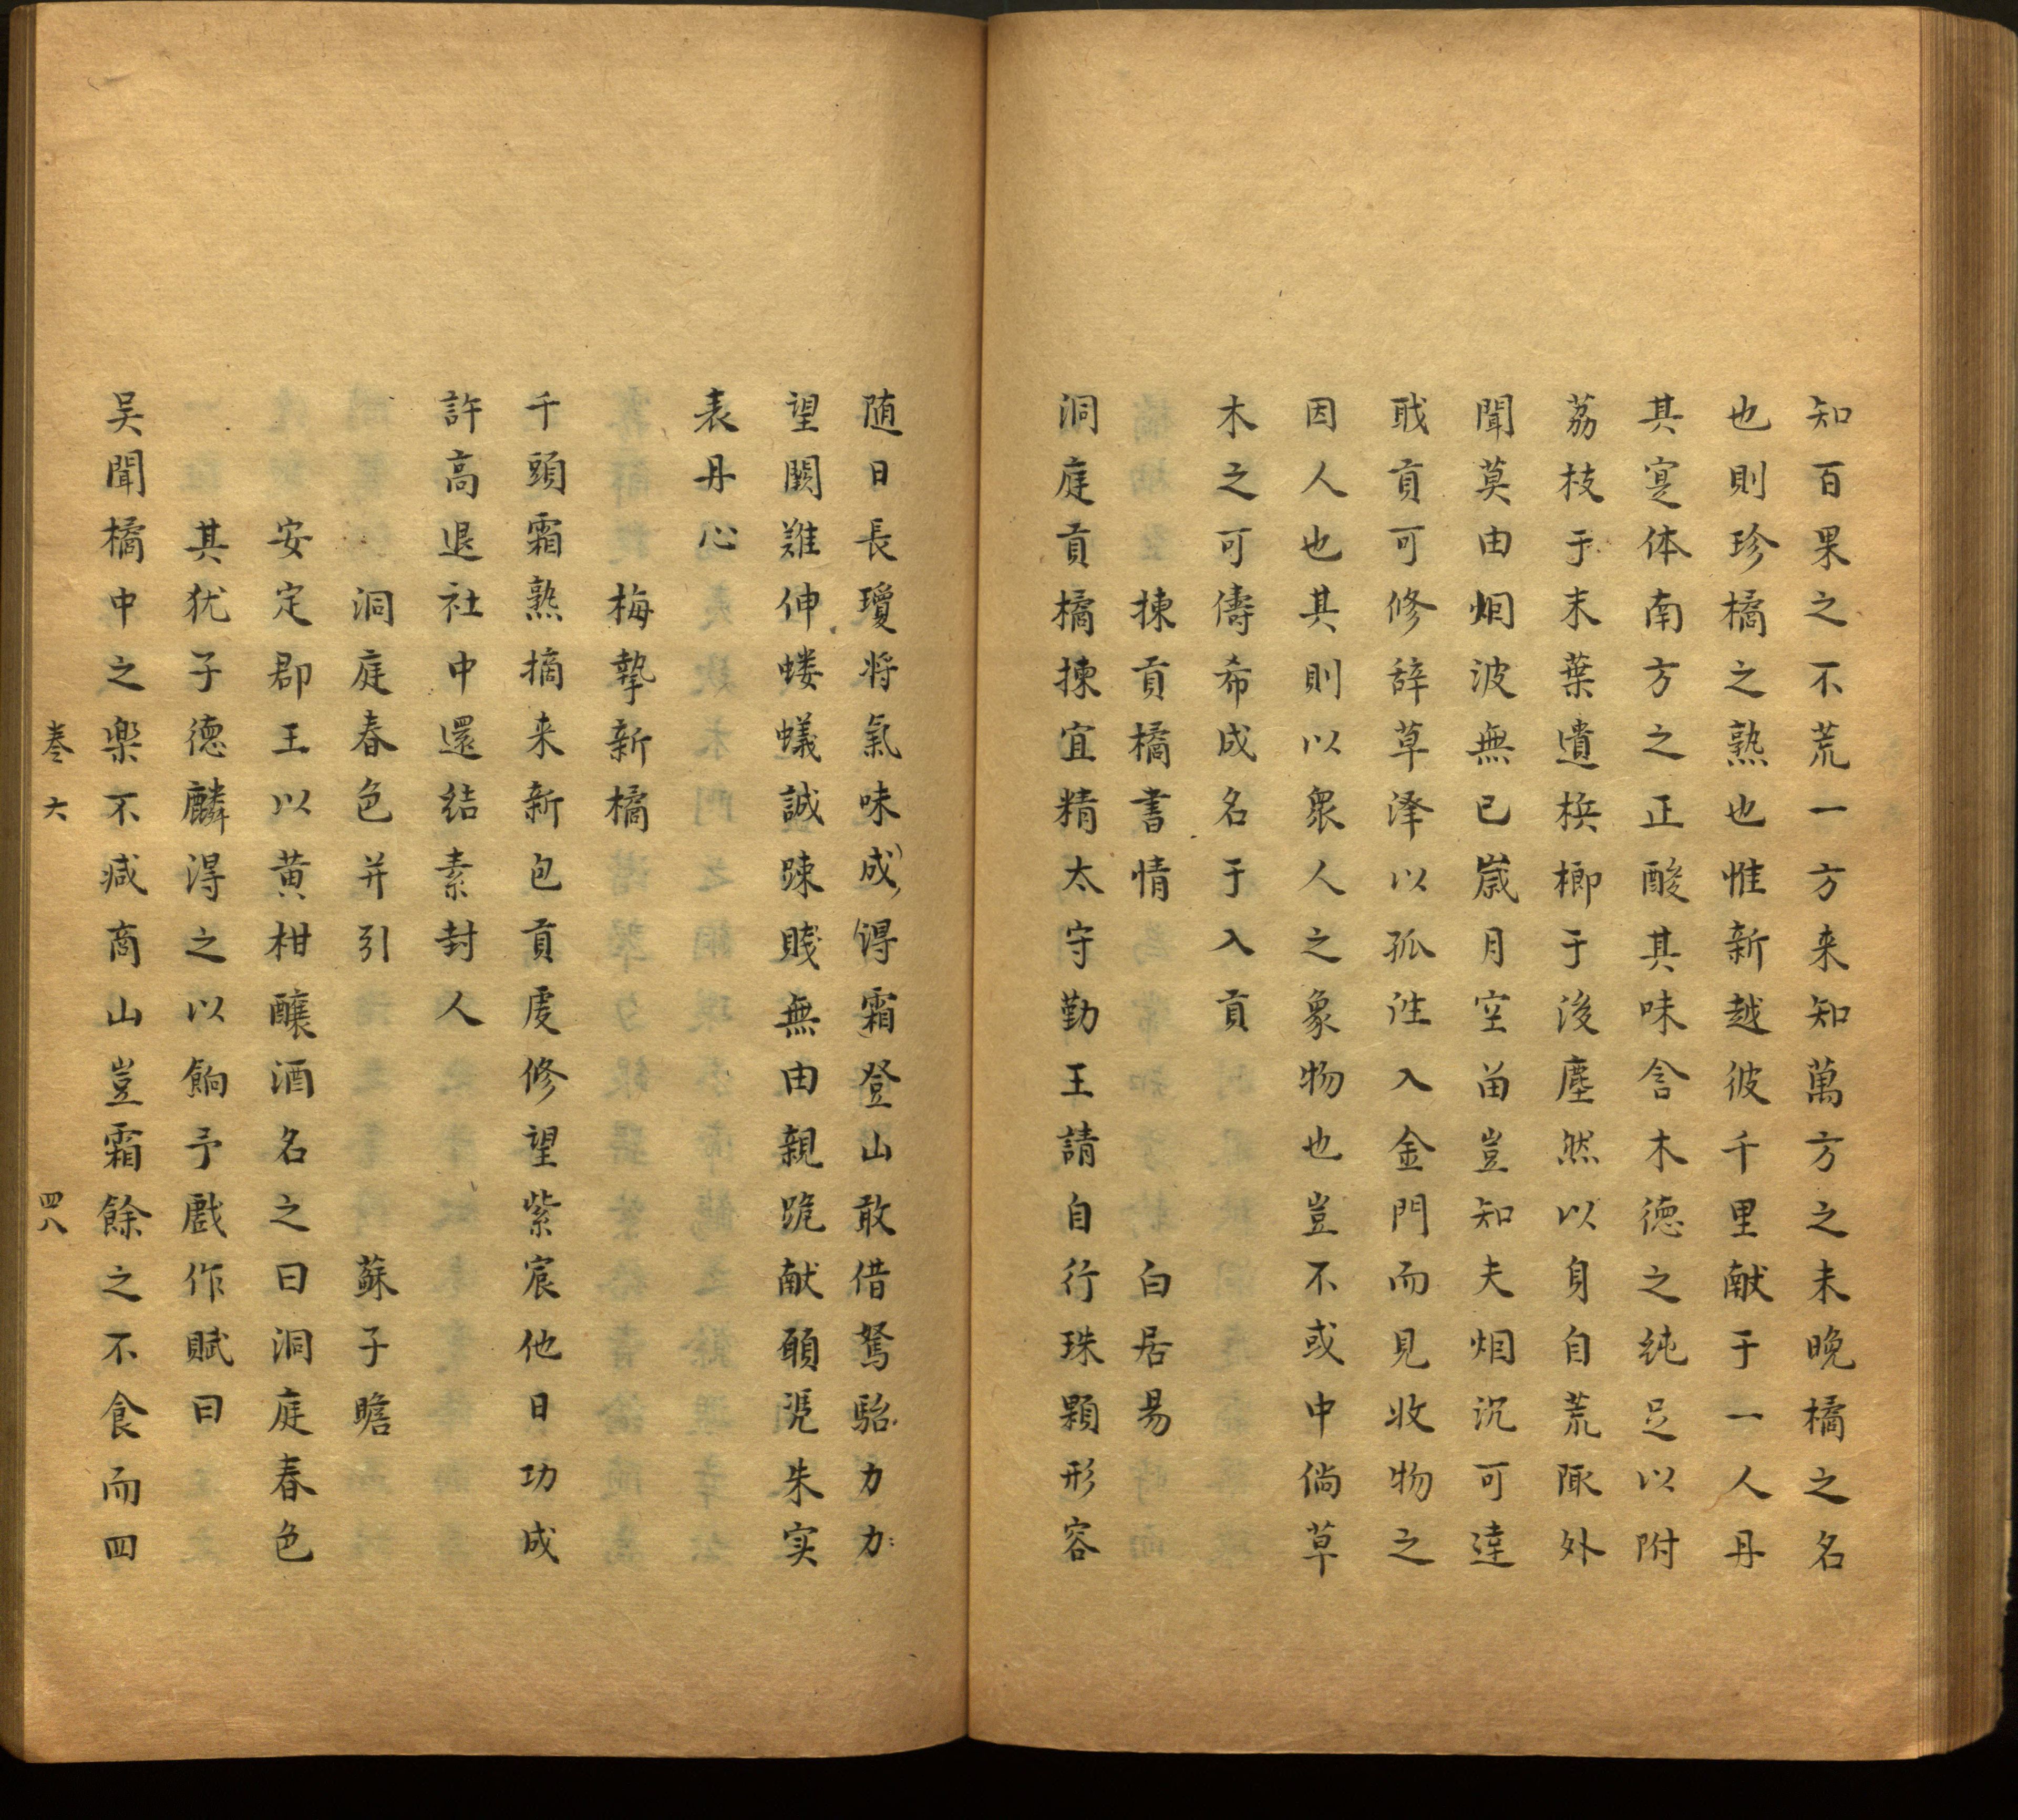 知百果之不荒一方来知萬方之未晚橘之名
也則珍橘之熟也惟新越彼千里献于一人丹
其寔体南方之正酸其味含木德之纯足以附
荔枝于末葉遺梹榔于後塵然以身自荒陬外
聞莫由烟波無已嵗月空畄豈知夫烟沉可達
戝貢可修辞草泽以孤徃入金門而見收物之
因人也其則以衆人之象物也豈不或中倘草
木之可儔希成名于入貢
揀貢橘書情 白居易
洞庭貢橘揀宜精太守勤王請自行珠顆形容
随日長瓊将氣味成得霜登山敢借駑駘力力
望闕難伸蝼蟻誠踈賤無由親跪献願凴朱实
表丹心
梅摯新橘
千頭霜熟摘来新包貢虔修望紫宸他日功成
許高退社中還结素封人
洞庭春色并引 蘇子瞻
安定郡王以黄柑釀酒名之曰洞庭春色
其犹子德麟得之以餉予戲作賦曰
吴聞橘中之楽不减商山豈霜餘之不食而四
卷六 四八